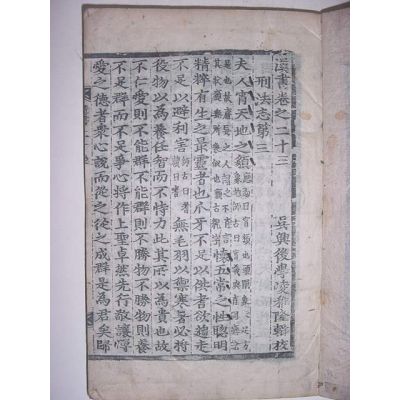 漢書卷之二十三　吳興後學凌稚隆輯校
刑法志第三
夫人宵天地之䫉
懷五常之性聰明
精粹有生之最靈者也爪牙不足以供耆欲趨走
不足以避利害師古曰耆讀曰嗜無毛羽以禦寒暑必將
役物以爲養任智而不恃力此其所以爲貴也故
不仁愛則不能群不能群則不勝物不勝物則養
不足群而不足爭心將作上聖卓然先行敬讓博
愛之德者衆心說而從之從之成群是爲君矣歸